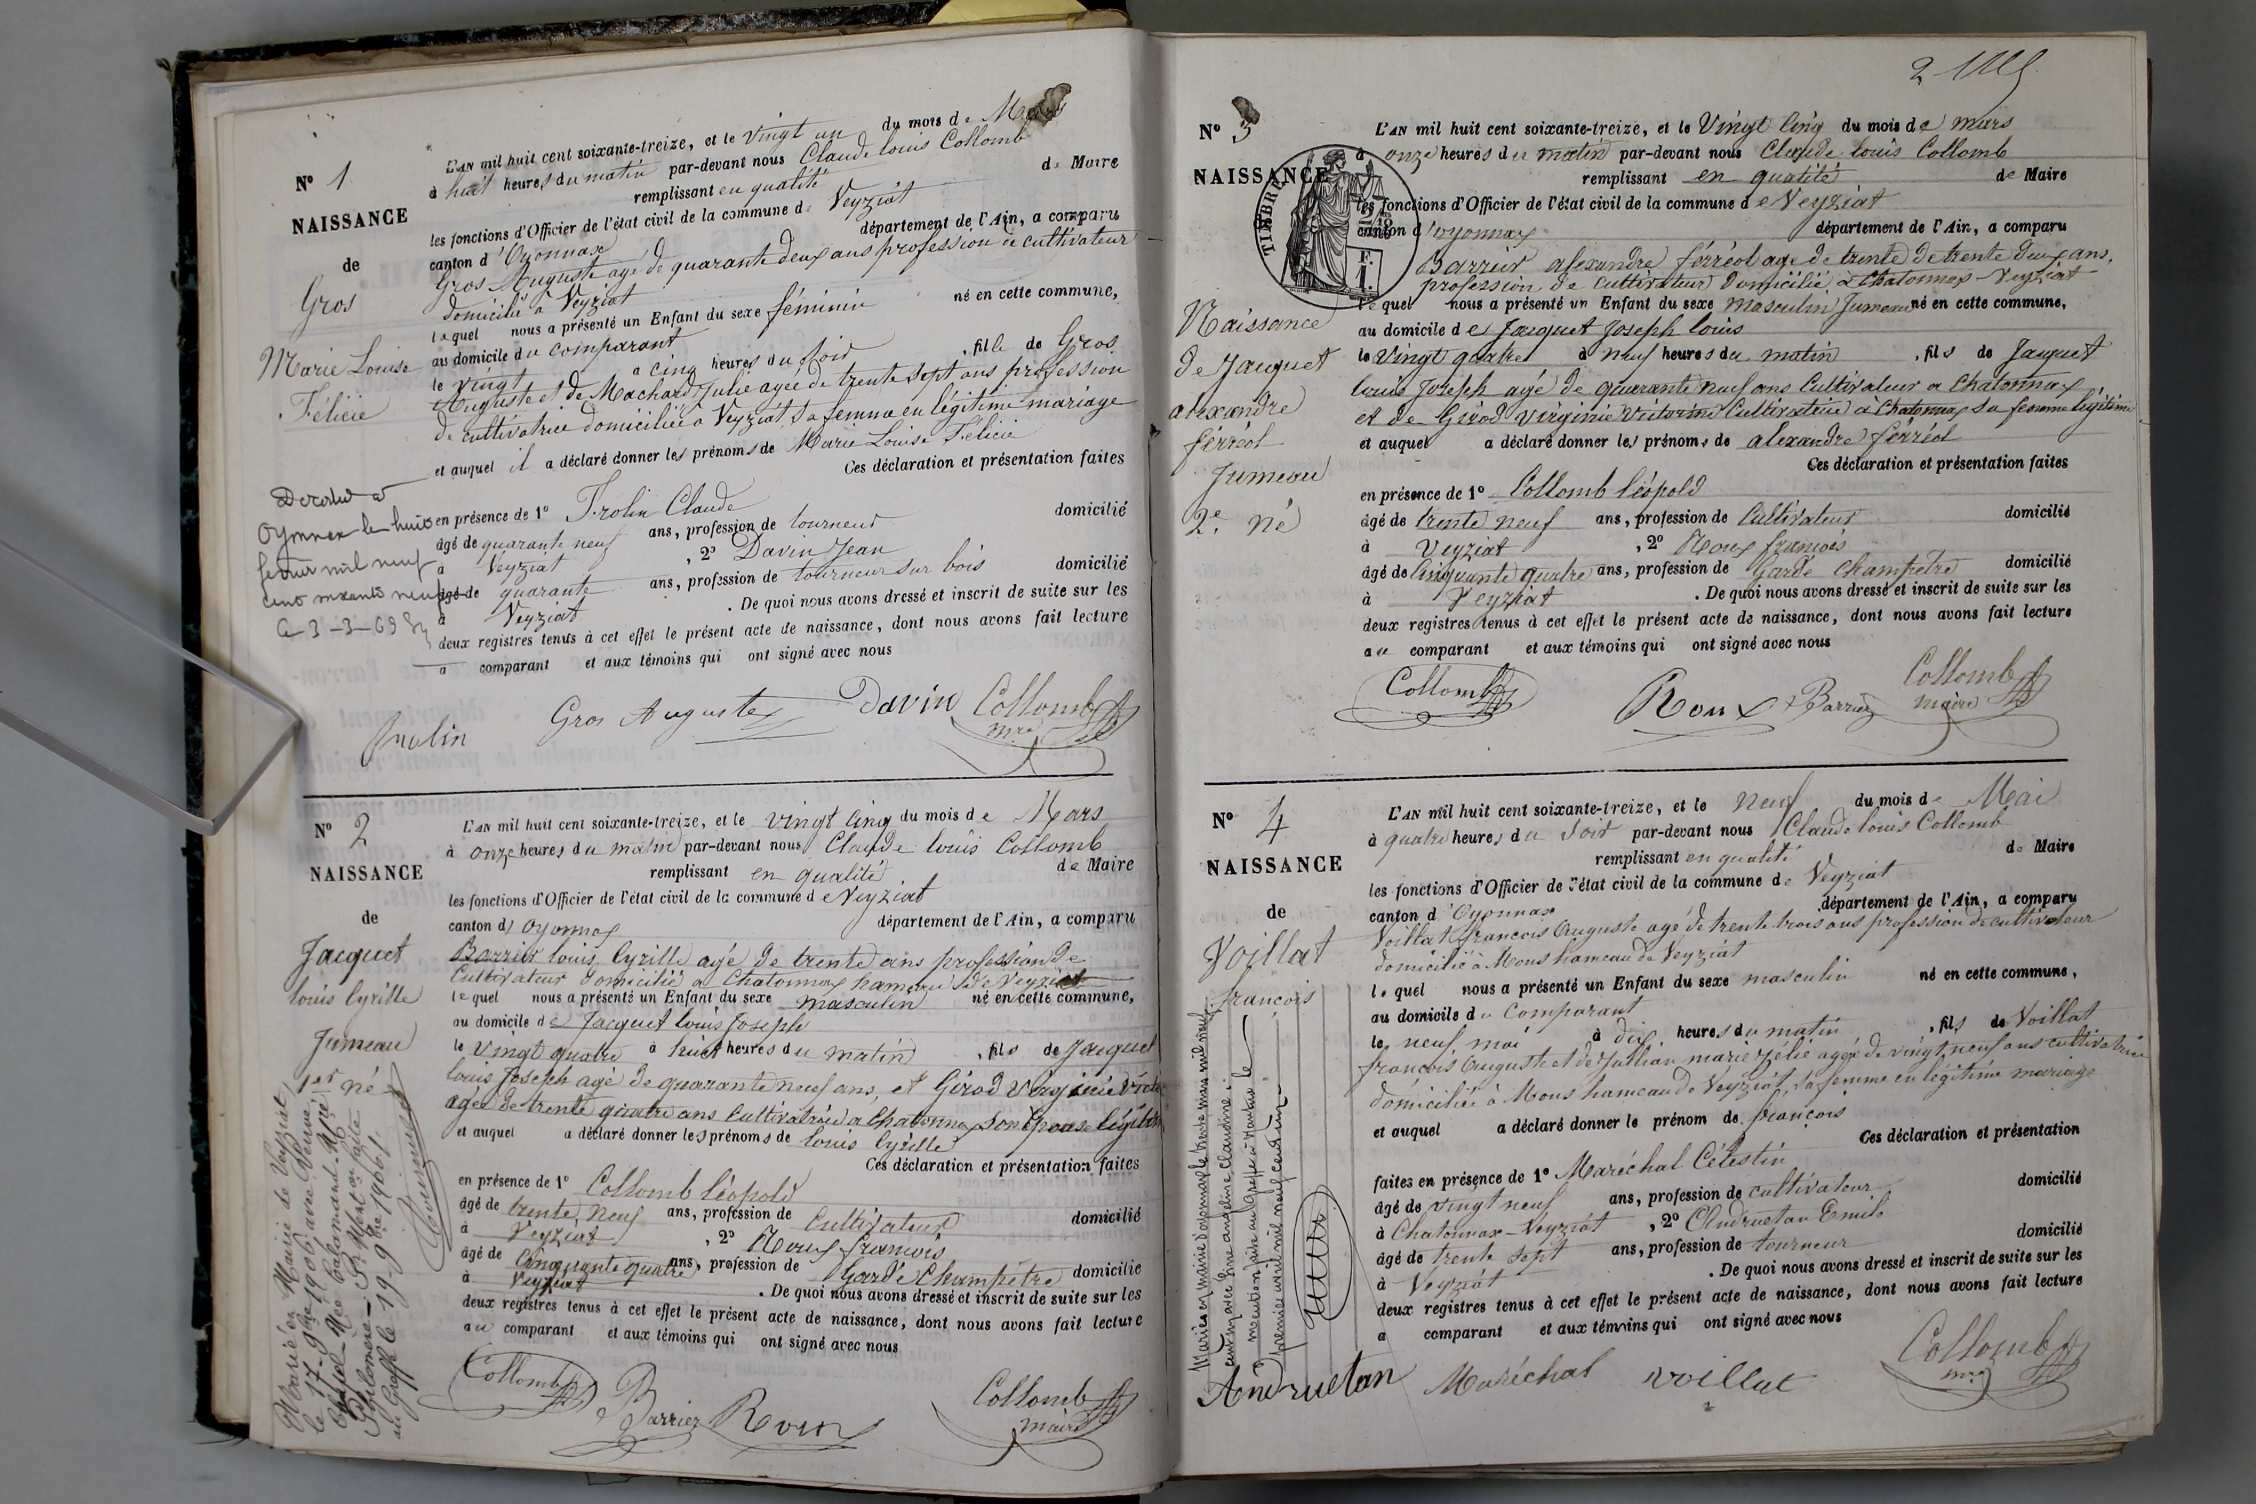 2
Nº 1
NAISSANCE
de
Gros
Marie Louise
Félicie
L'AN mil huit cent soixante-treize, et le Vingt un du mois de Mars
à huit heures du matin par-devant nous Claude louis Collomb
remplissant en qualité de Maire
les fonctions d'Officier de l'état civil de la commune de Veyziat
canton d'Oyonnax département de l'Ain, a comparu
Gros Auguste agé de quarante deux ans profession de cultivateur
domicilié à Veyziat
lequel nous a présenté un Enfant du sexe féminin né en cette commune,
au domicile du comparant
le vingt à cinq heures du soir, fille de Gros
Auguste et de Machard Julie agée de trente sept ans profession
de cultivatrice domiciliée à Veyziat, sa femme en légitime mariage
et auquel il a déclaré donner les prénoms de Marie Louise Félicie
Ces déclaration et présentation faites
en présence de 1º Frolin Claude
âgé de quarante neuf ans, profession de tourneur domicilié
à Veyziat, 2º Davin Jean
âgé de quarante ans, profession de tourneur sur bois domicilié
à Veyziat. De quoi nous avons dressé et inscrit de suite sur les
deux registres tenus à cet effet le présent acte de naissance, dont nous avons fait lecture
a comparant et aux témoins qui ont signé avec nous
Décédée à
Oyonnax le huit
février mil neuf
cent soixante neuf
3-3-69
Frolin Gros Auguste Davin Collomb
mre
Nº 2
NAISSANCE
de
Jacquet
louis Cyrille
Jumeau
1er né
L'AN mil huit cent soixante-treize, et le vingt cinq du mois de Mars
à onze heures du matin par-devant nous Claude louis Collomb
remplissant en qualité de Maire
les fonctions d'Officier de l'état civil de la commune de Veyziat
canton d'oyonnax département de l'Ain, a comparu
Barrier louis Cyrille agé de trente ans profession de
Cultivateur domicilié a Chatonnax hameau de Veyziat
lequel nous a présenté un Enfant du sexe masculin né en cette commune,
au domicile de Jacquet louis Joseph
le vingt quatre à huit heures du matin, fils de Jacquet
louis Joseph agé de quarante neuf ans, et Gérod Virginie
agée de trente quatre ans Cultivatrice a Chatonnax son épouse légitime
et auquel a déclaré donner les prénoms de louis Cyrille
Ces déclaration et présentation faites
en présence de 1º Collomb léopold
âgé de trente neuf ans, profession de Cultivateur domicilié
à Veyziat, 2º Roux francois
âgé de Cinquante quatre ans, profession de Garde Champêtre domicilié
à Veyziat. De quoi nous avons dressé et inscrit de suite sur les
deux registres tenus à cet effet le présent acte de naissance, dont nous avons fait lecture
au comparant et aux témoins qui ont signé avec nous
Marié en Mairie de Veyziat,
le 17-9bre 1906, avec
Philomène
au Greffe le 19-9bre 1906.
Collomb Barrier Roux Collomb
maire
Nº 3
NAISSANCE
TIMBRE
Naissance
de Jacquet
alexandre
férréol
Jumeau
2e né
L'AN mil huit cent soixante-treize, et le Vingt Cinq du mois de mars
à onze heures du matin par-devant nous Claude louis Collomb
remplissant en qualité de Maire
les fonctions d'Officier de l'état civil de la commune de Veyziat
canton d'oyonnax département de l'Ain, a comparu
Barrier alexandre férréol agé de trente de trente deux ans,
profession de cultivateur Domicilié a Chatonnax - Veyziat
lequel nous a présenté un Enfant du sexe masculin Jumeau né en cette commune,
au domicile de Jacquet Joseph louis
le Vingt quatre à neuf heures du matin, fils de Jacquet
louis Joseph agé de quarante neuf ans Cultivateur a Chatonnax
et de Gérod Virginie Victorine Cultivatrice à Chatonnax sa femme légitime
et auquel a déclaré donner les prénoms de alexandre férréol
Ces déclaration et présentation faites
en présence de 1º Collomb léopold
âgé de trente neuf ans, profession de Cultivateur domicilié
à Veyziat, 2º Roux francois
âgé de Cinquante quatre ans, profession de Garde Champêtre domicilié
à Veyziat. De quoi nous avons dressé et inscrit de suite sur les
deux registres tenus à cet effet le présent acte de naissance, dont nous avons fait lecture
au comparant et aux témoins qui ont signé avec nous
Collomb Roux Barrier Collomb
maire
Nº 4
NAISSANCE
de
Voillat
francois
L'AN mil huit cent soixante-treize, et le Neuf du mois de Mai
à quatre heures du soir par-devant nous Claude louis Collomb
remplissant en qualité de Maire
les fonctions d'Officier de l'état civil de la commune de Veyziat
canton d'Oyonnax département de l'Ain, a comparu
Voillat francois Auguste agé de trente trois ans profession de cultivateur
domicilié à Mons hameau de Veyziat
lequel nous a présenté un Enfant du sexe masculin né en cette commune,
au domicile du Comparant
le neuf mai à dix heures du matin, fils de Voillat
francois Auguste et de Jullian marie Zélie agée de vingt neuf ans cultivatrice
domiciliée à Mons hameau de Veyziat, sa femme en légitime mariage
et auquel a déclaré donner le prénom de francois
Ces déclaration et présentation
faites en présence de 1º Maréchal Célestin
âgé de vingt neuf ans, profession de cultivateur domicilié
à Chatonnax - Veyziat, 2º Andruetan Emile
âgé de trente sept ans, profession de tourneur domicilié
à Veyziat. De quoi nous avons dressé et inscrit de suite sur les
deux registres tenus à cet effet le présent acte de naissance, dont nous avons fait lecture
a comparant et aux témoins qui ont signé avec nous
Marié en mairie d'oyonnax le treize mars mil neuf
cent onze avec angeline claudine
mention faite au Greffe à Nantua le
premier avril mil neuf cent onze
Andruetan Maréchal Voillat Collomb
mre